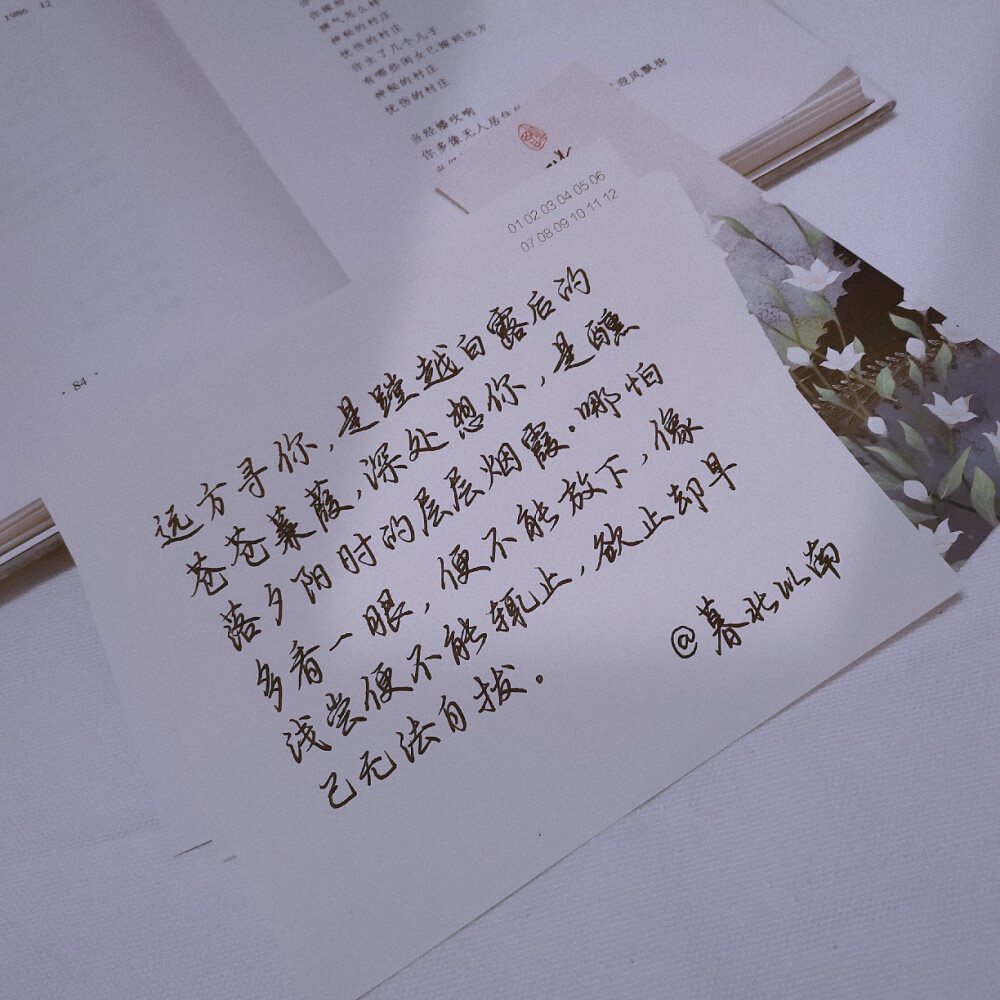 1986. 12
脾气怎么样
神秘的村庄
忧伤的村庄
你生了几个儿子
有哪些闺女已嫁到远方
神秘的村庄
忧伤的村庄
当经幡吹响
你多像无人居住
迎风飘扬
84
01 02 03 04 05 06
07 08 09 10 11 12
远方寻你,是蹚越白露后的
苍苍蒹葭,深处想你,是醺
落夕阳时的层层烟霞。哪怕
多看一眼,便不能放下,像
浅尝便不能辄止,欲止却早
已无法自拔。
@暮北以南